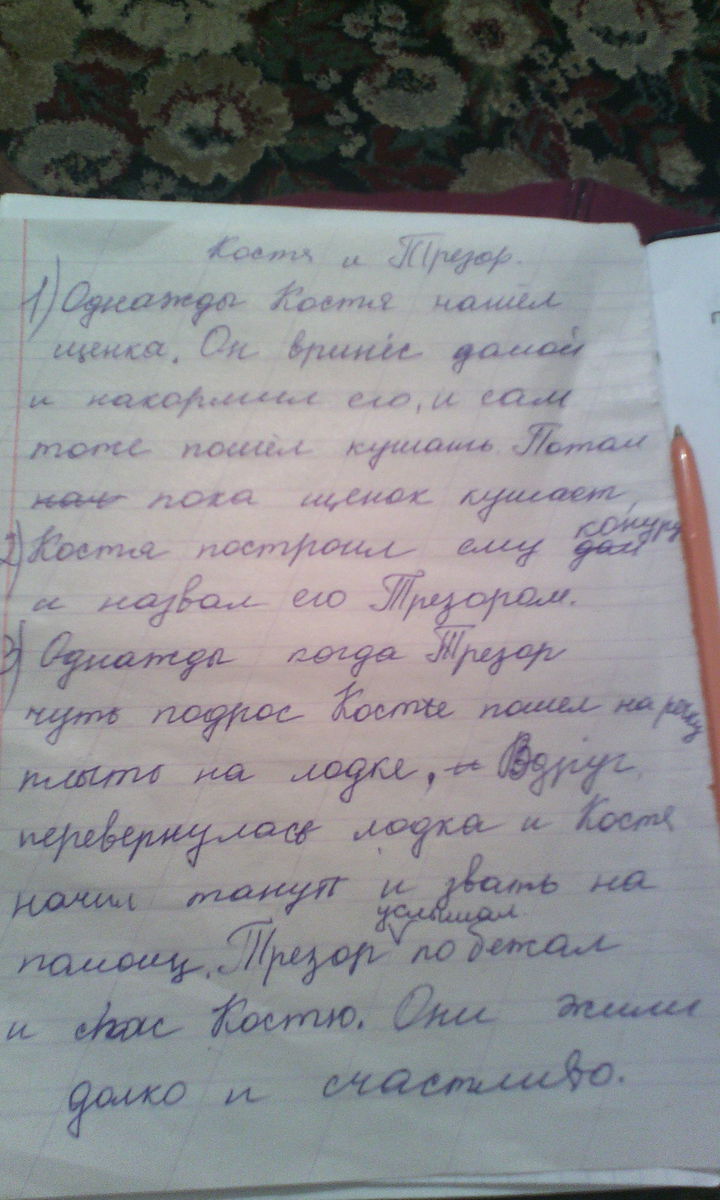 Костя и Трезор.
1) Однажды Костя нашёл
щенка. Он вринёс домой
и накормил его, и сам
тоже пошёл кушать. Потом
нач пока щенок кушает,
2) Костя построил ему дом конуру
и назвал его Трезором.
3) Однажды когда Трезор
чуть подрос Костье пошел на речку
плыть на лодке, и Вдруг
перевернулась лодка и Костя
начил танут и звать на
памощ. Трезор услышал побежал
и спас Костю. Они жили
долко и счастливо.